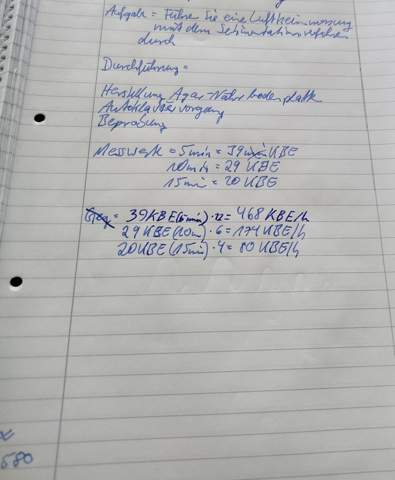 Aufgabe = Führen Sie eine Luftkeimmessung
mit dem Sedimentationsverfahren
durch
Durchführung =
Herstellung Agar-Nährbodenplatte
Autoklaviervorgang
Beprobung
Messwerte = 5min = 39 KBE
10min = 29 KBE
15min = 20 KBE
= 39 KBE (5min) · 12 = 468 KBE/h
29 KBE (10m) · 6 = 174 KBE/h
20 KBE (15min) · 4 = 80 KBE/h
580